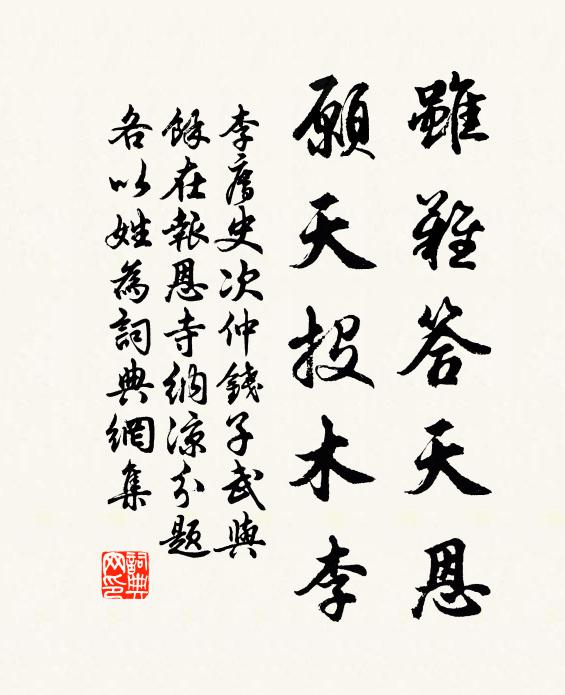 雖難答天恩
願天投木李
李史次仲錢子武與
餘在報恩寺納涼分題
各以姓為詞典網集
詞典網印